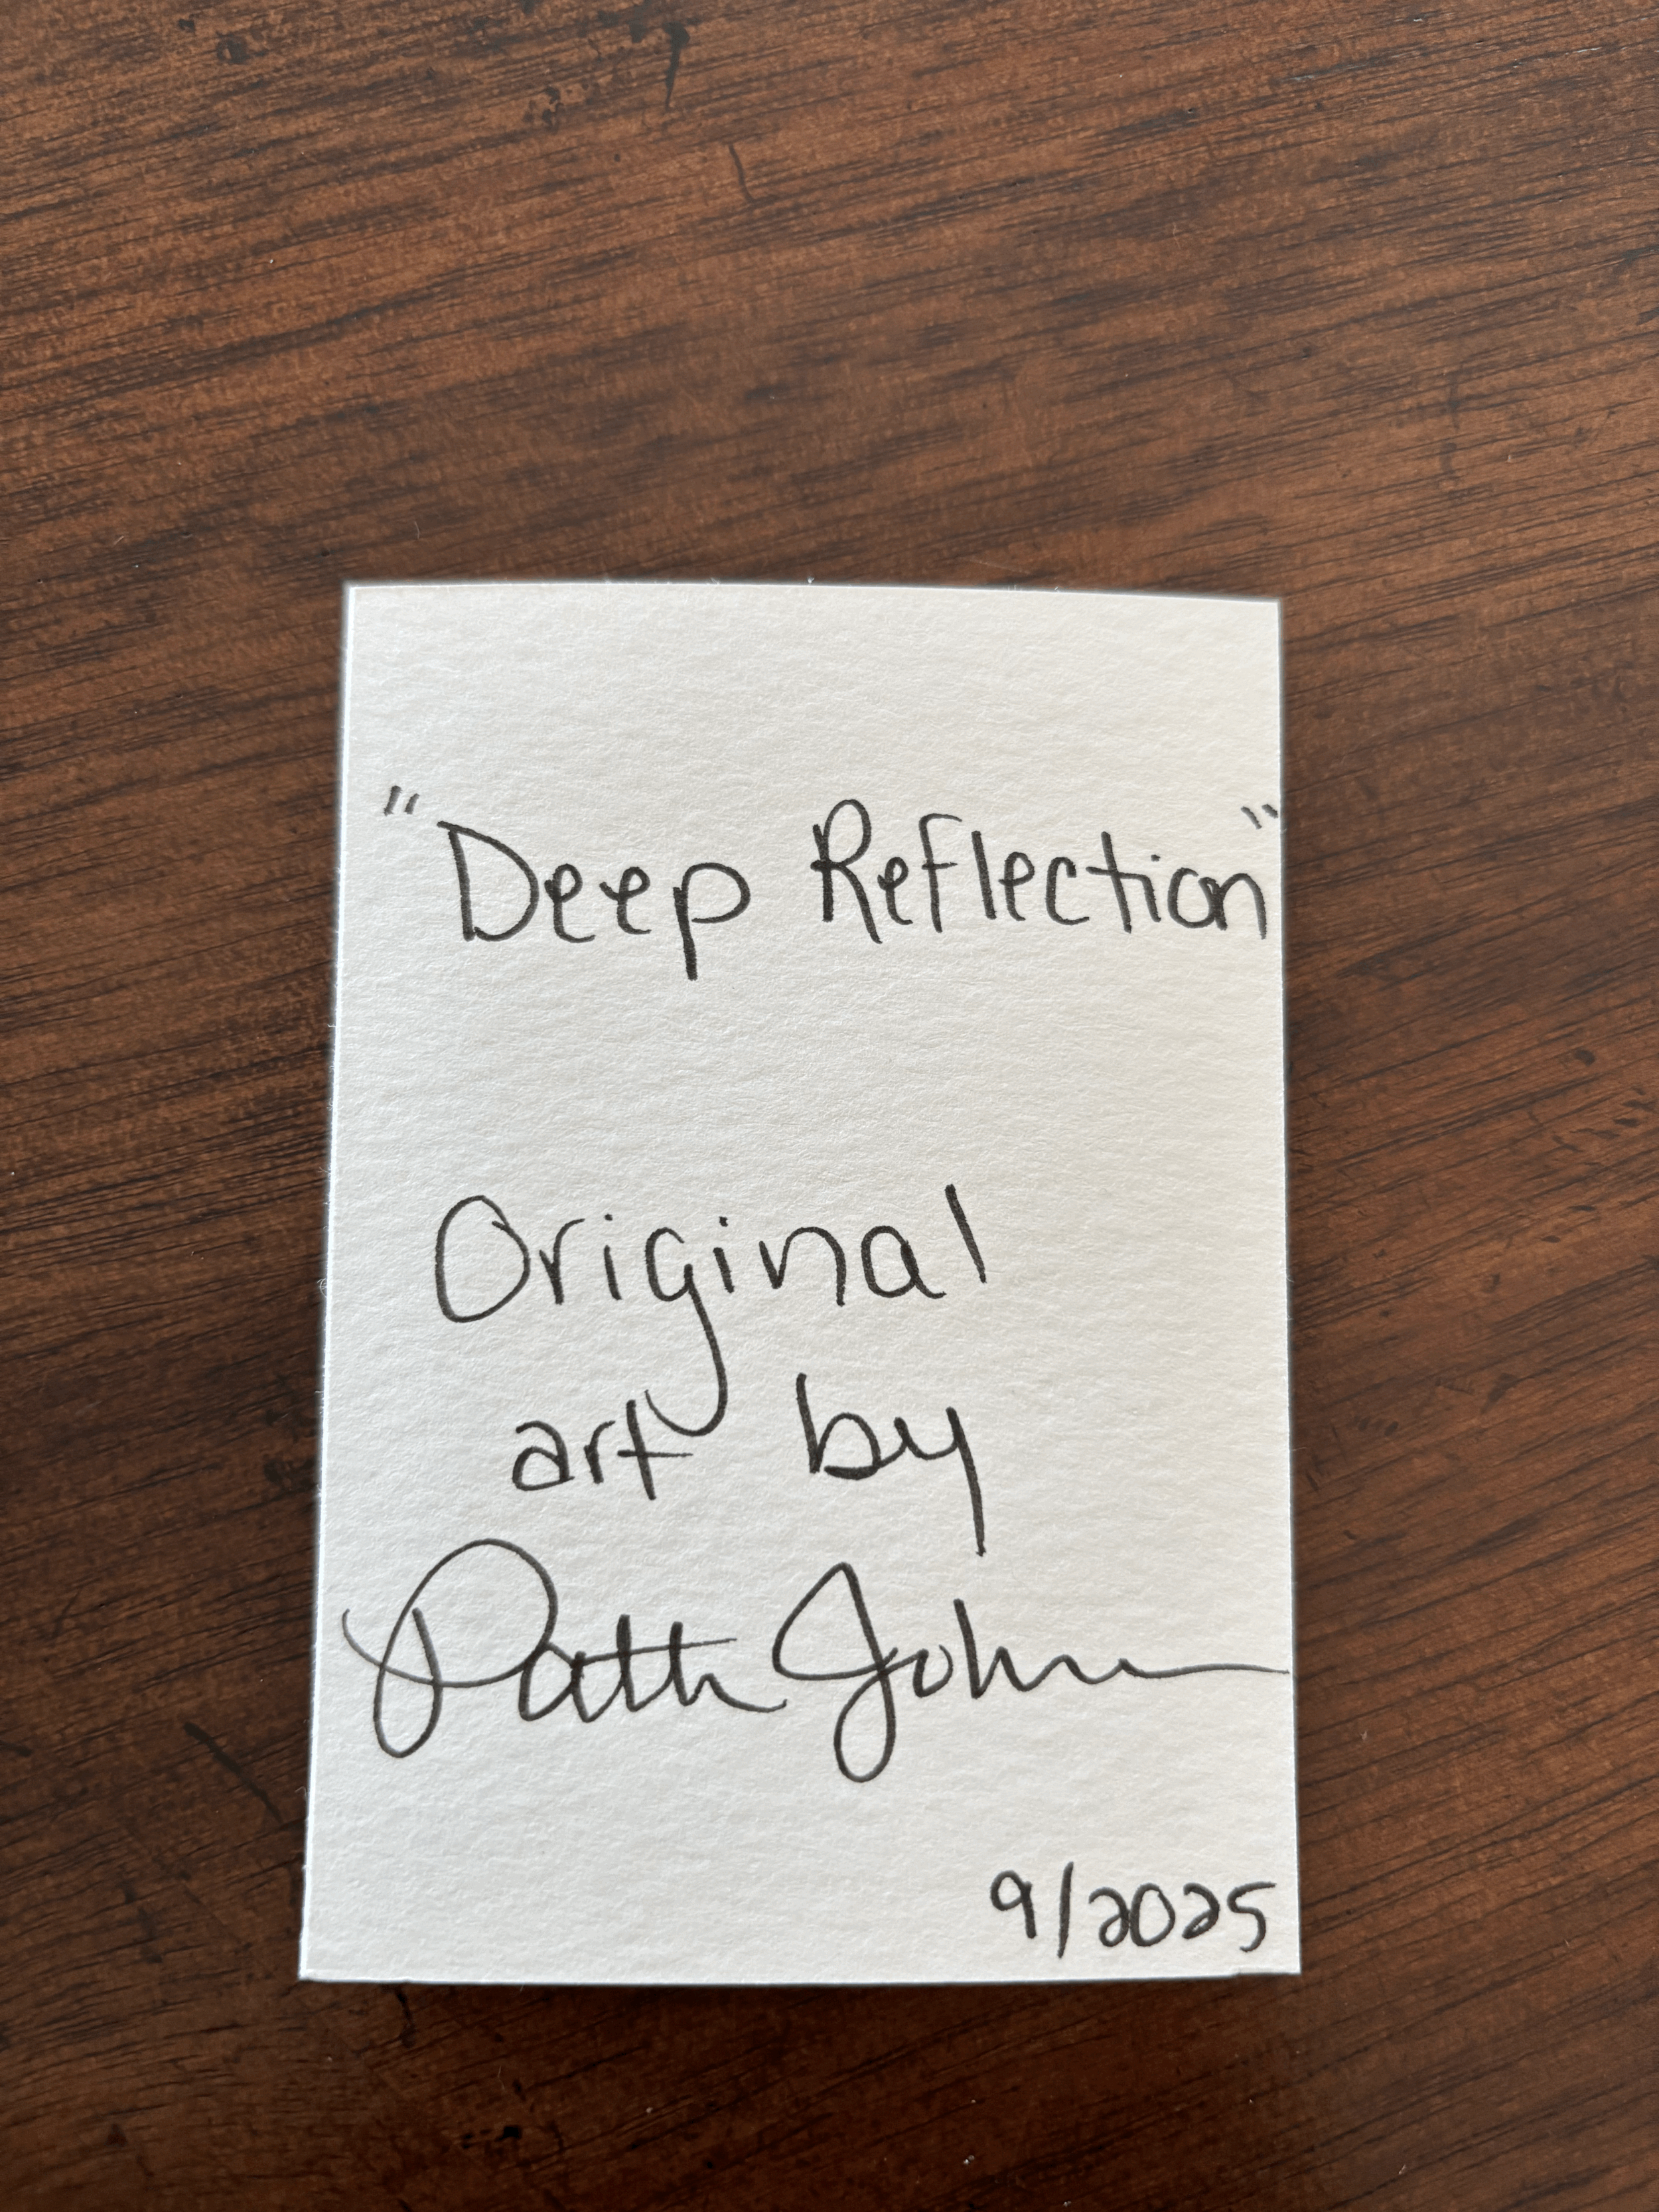 "Deep Reflection"
Original
art by
Patti Johnson
9/2025